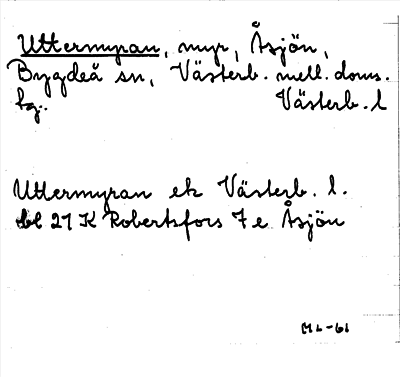 Uttermyran, myr, Åsjön,
Bygdeå sn, Västerb. mell. doms.
tg. Västerb. l
Uttermyran ek Västerb. l.
bl 21 K Robertsfors 7 e Åsjön
ML-61